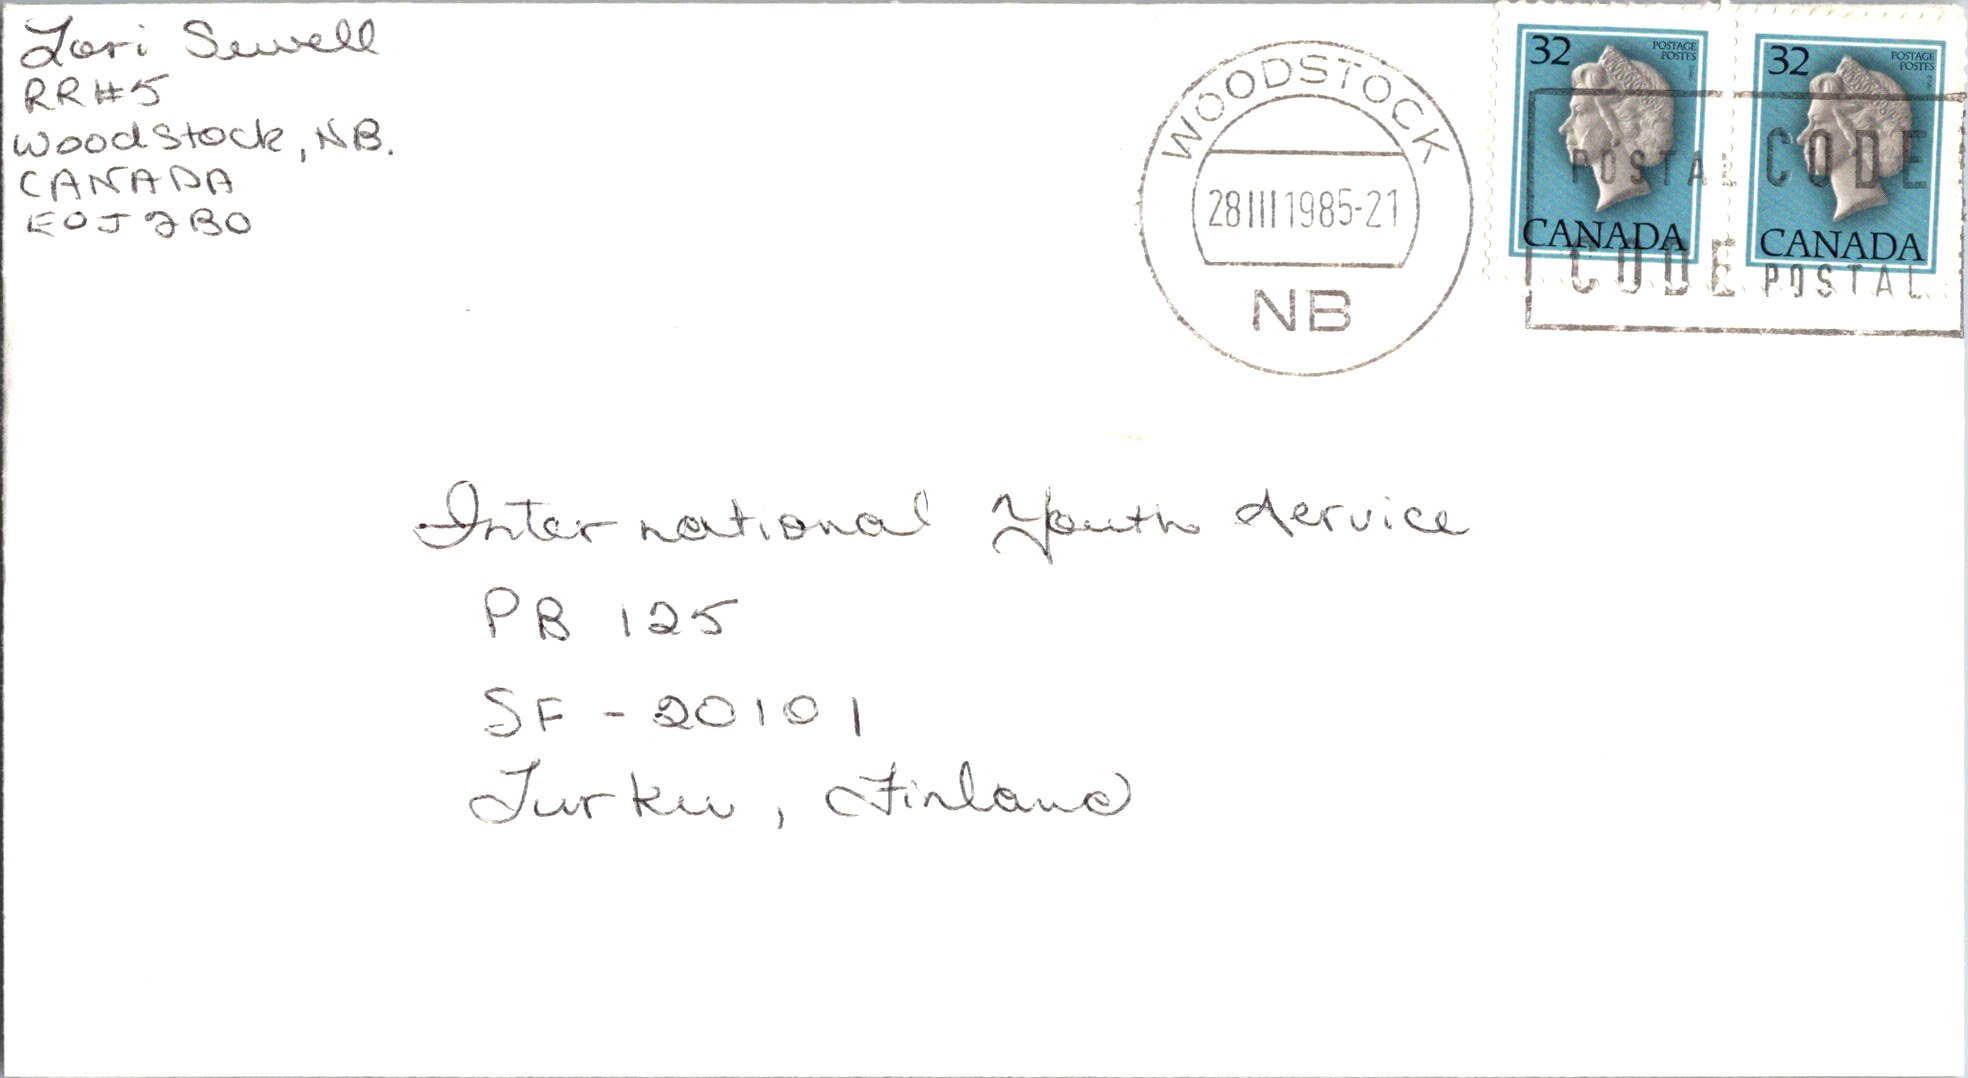 Lori Sewell
RR#5
Woodstock, NB.
CANADA
E0J 2B0
WOODSTOCK
28 III 1985-21
NB
32
POSTAGE
POSTES
CANADA
32
POSTAGE
POSTES
CANADA
POSTAL CODE
CODE POSTAL
International Youth Service
PB 125
SF - 20101
Turku, Finland